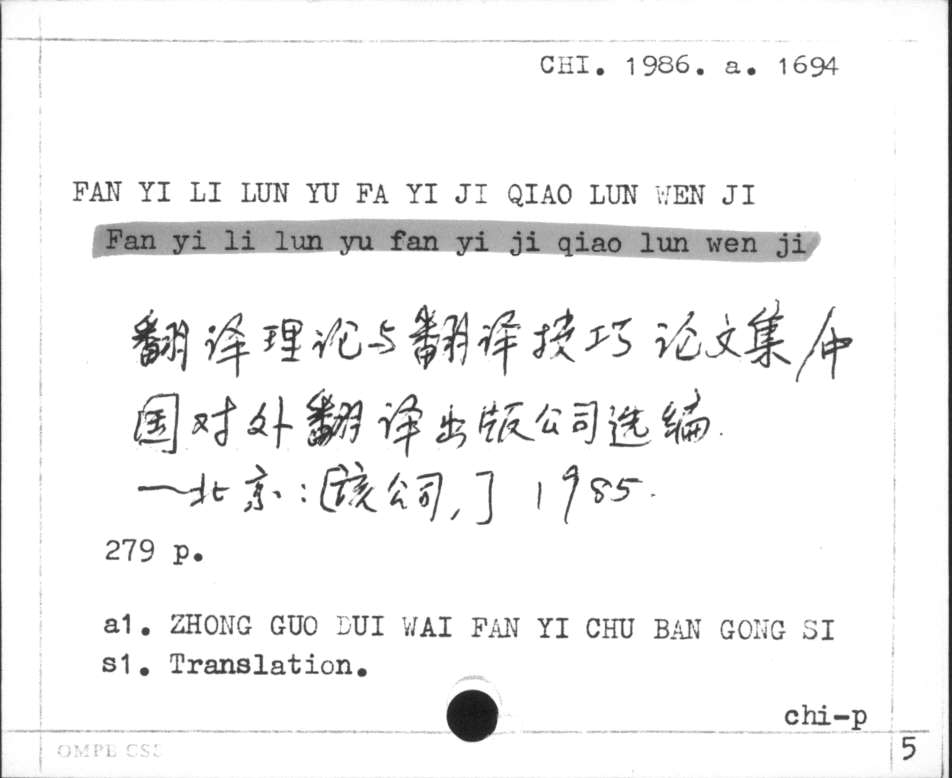 CHI. 1986. a. 1694
FAN YI LI LUN YU FA YI JI QIAO LUN WEN JI
Fan yi li lun yu fan yi ji qiao lun wen ji
翻译理论与翻译技巧论文集/中
国对外翻译出版公司选编.
—北京:[该公司,] 1985.
279 p.
a1. ZHONG GUO DUI WAI FAN YI CHU BAN GONG SI
s1. Translation.
chi-p
5